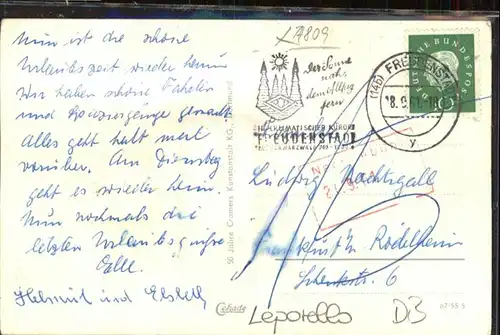 LA809
Nun ist die schöne
Urlaubszeit wieder herum
Wir haben schöne Fahrten
und Spaziergänge gemacht
Alles geht halt mal
vorüber. Am Dienstag
geht es wieder heim.
Nun nochmals die
letzten Urlaubsgrüße
Helmut und
50 Jahre Cramers Kunstanstalt KG, Dortmund
Der Sonne
nah,
dem Alltag
fern
HEILKLIMATISCHER KURORT
FREUDENSTADT
DEUTSCHE BUNDESPOST
(14b) FREUDENSTADT
y
Ludwig Nachtigall
Frankfurt/M Rödelheim
6
Leporello
D3